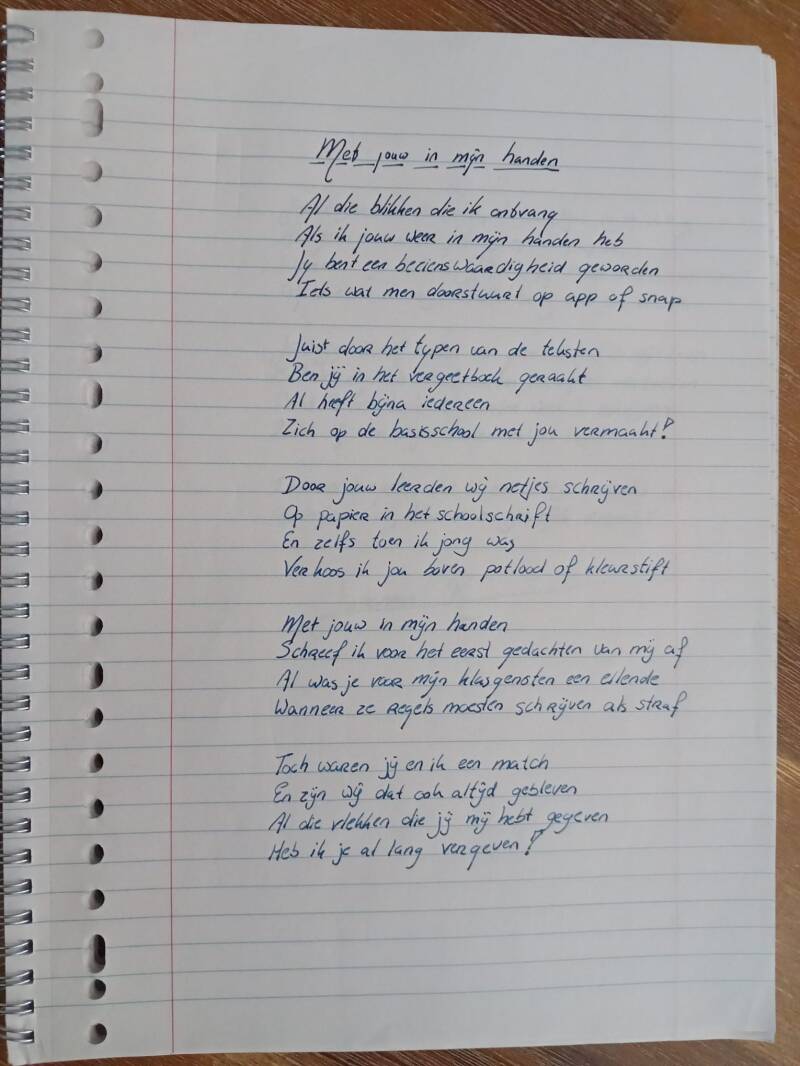 Met jouw in mijn handen
Al die blikken die ik ontvang
Als ik jouw weer in mijn handen heb
Jy bent een beziens waardigheid geworden
Iets wat men doorstuurt op app of snap
Juist door het typen van de teksten
Ben jij in het vergeetboek geraakt
Al heeft bijna iedereen
Zich op de basisschool met jou vermaakt!
Door jouw leerden wij netjes schrijven
Op papier in het schoolschrift
En zelfs toen ik jong was
Verkoos ik jou boven potlood of kleurstift
Met jouw in mijn handen
Schreef ik voor het eerst gedachten van mij af
Al was je voor mijn klasgenoten een ellende
Wanneer ze regels moesten schrijven als straf
Toch waren jij en ik een match
En zijn wij dat ook altijd gebleven
Al die vlekken die jij mij hebt gegeven
Heb ik je al lang vergeven!